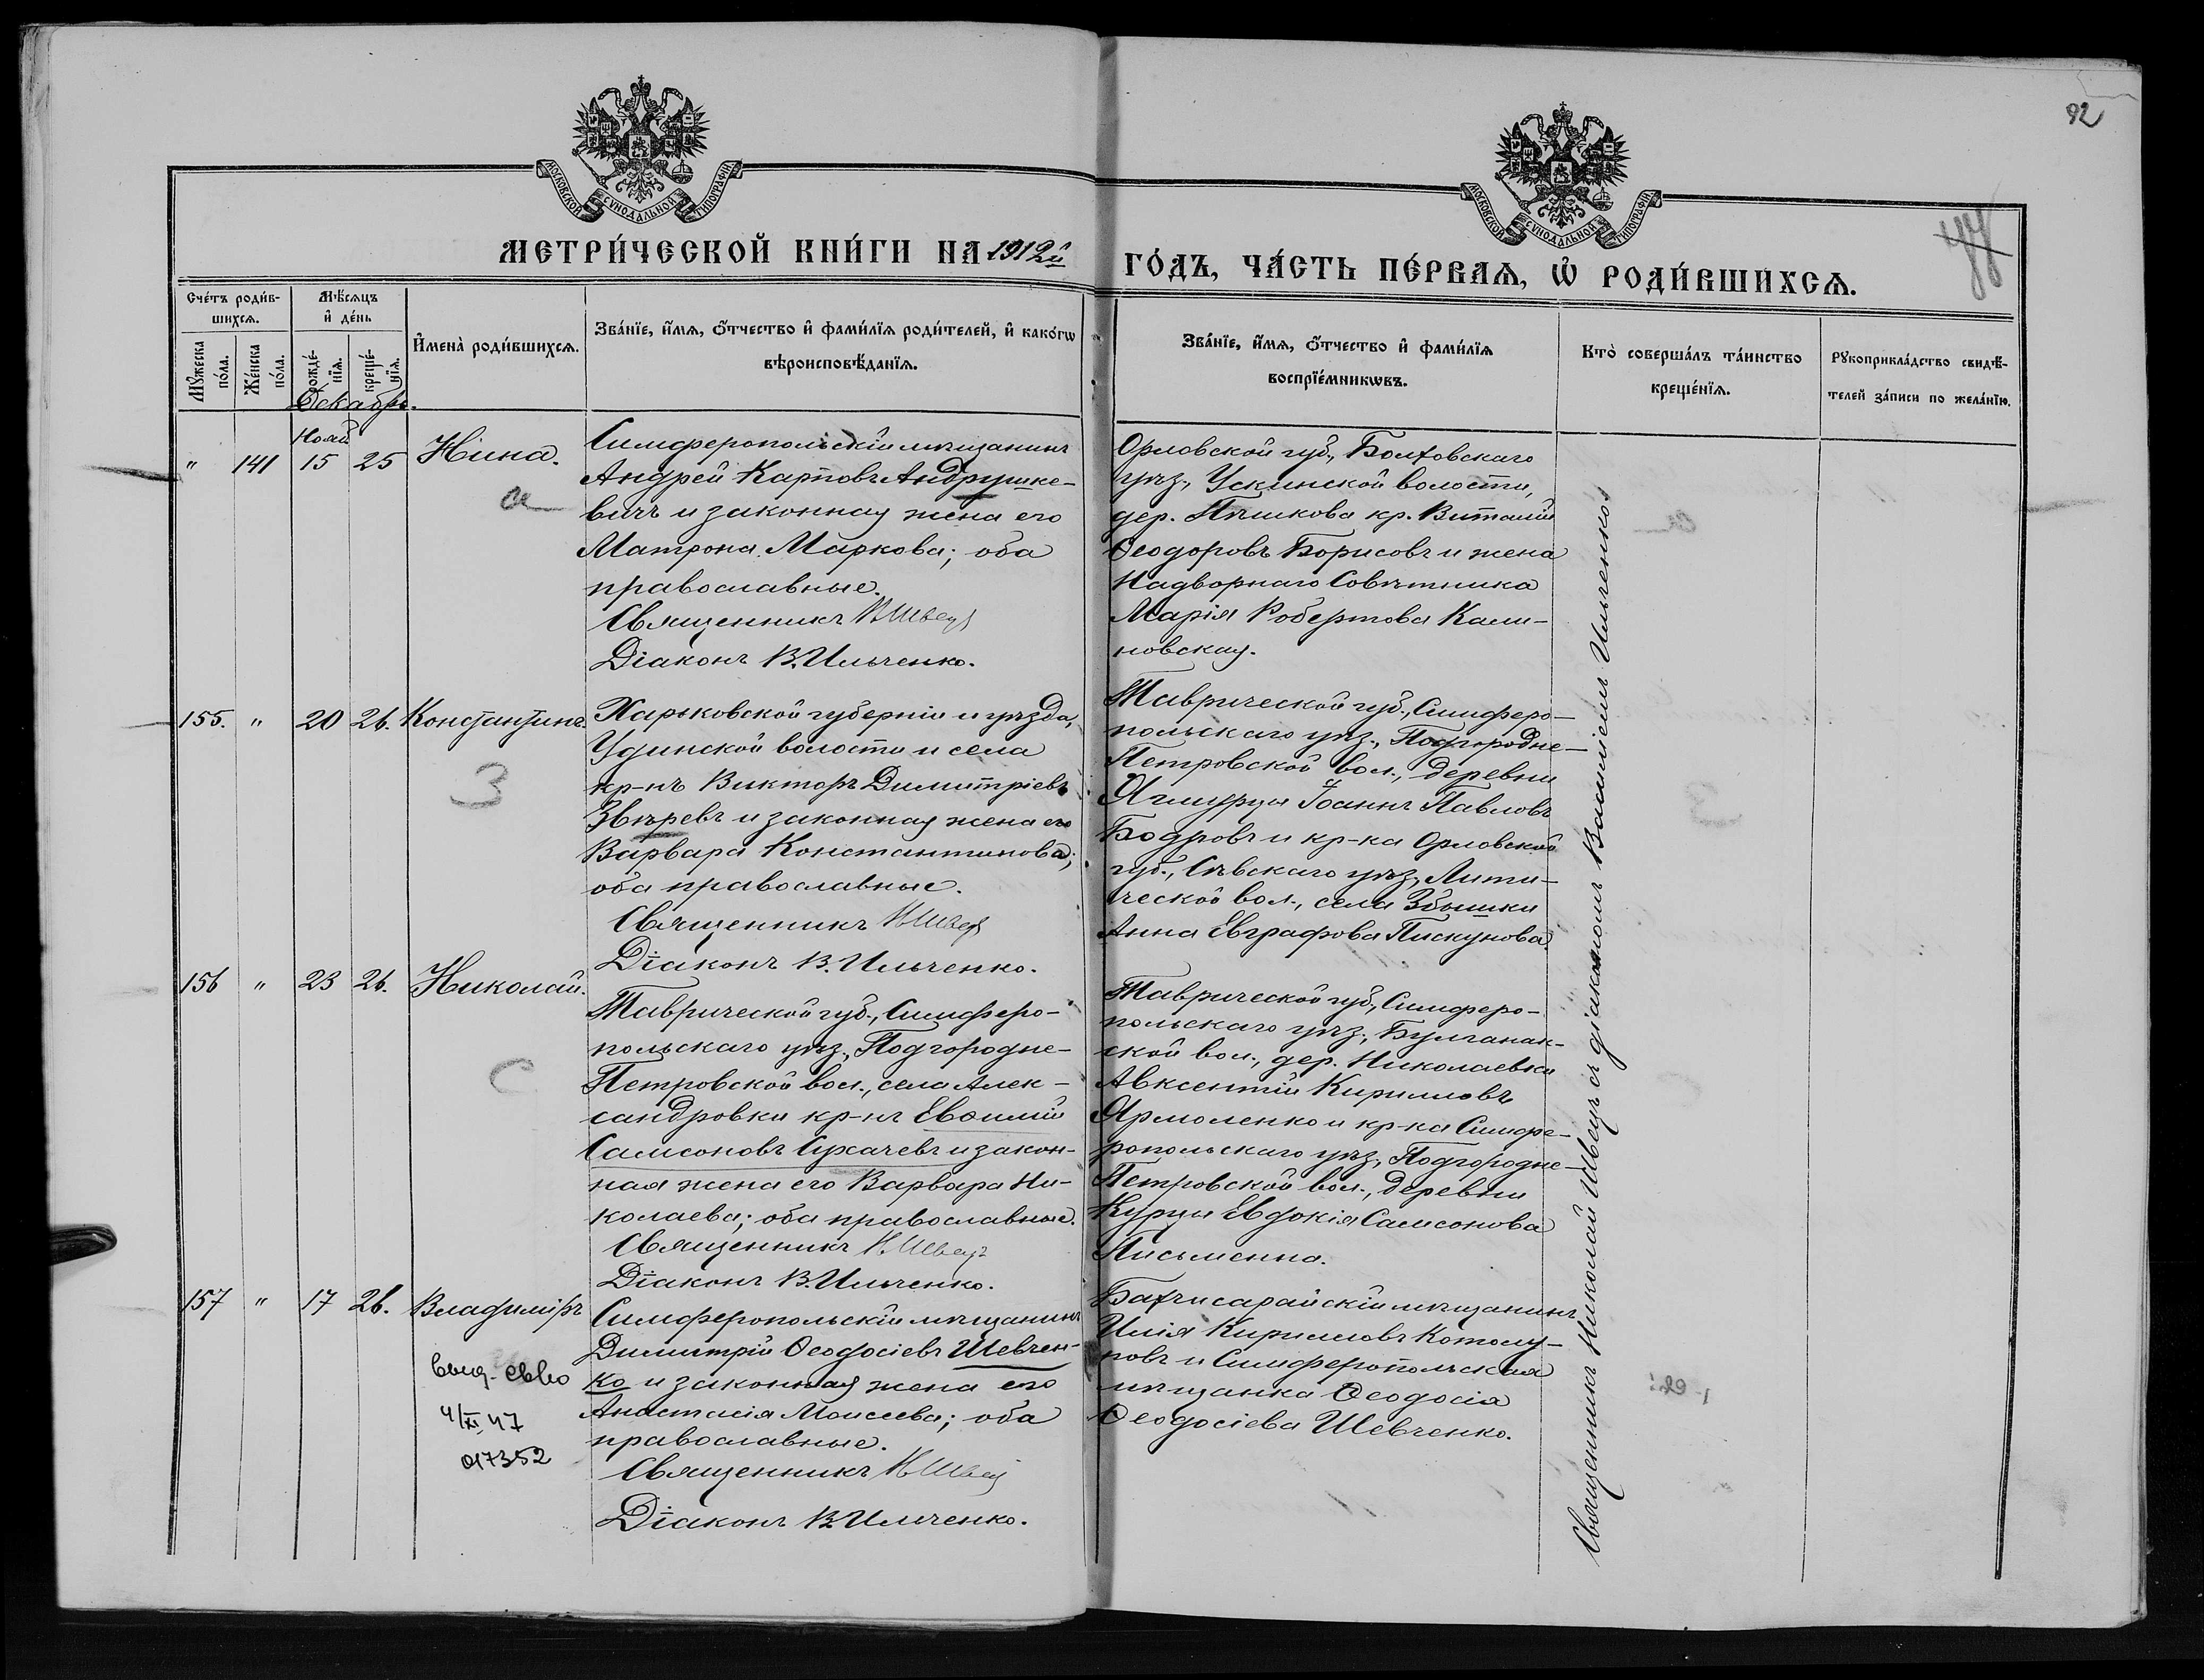 92
МОСКОВСКОЙ СѴНОДАЛЬНОЙ ТИПОГРАФІИ
МОСКОВСКОЙ СѴНОДАЛЬНОЙ ТИПОГРАФІИ
МЕТРИ́ЧЕСКОЙ КНИ́ГИ НА 1912й
ГО́ДЪ, ЧА́СТЬ ПЕ́РВАЯ, Ѡ҆ РОДИ́ВШИХСѦ.
Сче́тъ роди́в-
шихсѧ.
Мѣ́сѧцъ
и҆ де́нь
И҆мена̀ роди́вшихсѧ.
Зва́нїе, и҆́мѧ, ѻ҆́тчество и҆ фами́лїѧ роди́телей, и҆ како́гѡ
вѣроисповѣ́данїѧ.
Мꙋ́жеска
по́ла.
Же́нска
по́ла.
рожде́-
нїѧ.
креще́-
нїѧ.
Декабрь.
Зва́нїе, и҆́мѧ, ѻ҆́тчество и҆ фами́лїѧ
воспрїе́мникѡвъ.
Кто̀ соверша́лъ та́инство
креще́нїѧ.
Рꙋкоприкла́дство свидѣ́-
телей за́писи по жела́нїю.
" 141
Нояб
15 25
Нина.
Симферопольскій мѣщанинъ
Андрей Карповъ Андрушке-
вичъ и законная жена его
Матрона Маркова; оба
православные.
Священникъ Н Швецъ
Діаконъ В. Ильченко.
Орловской губ., Болховскаго
уѣз., Ускинской волости,
дер. Пѣшкова кр. Виталій
Ѳеодоровъ Борисовъ и жена
Надворнаго Совѣтника
Марія Робертова Кали-
новская.
155. " 20 26. Константинъ.
З
Харьковской губерніи и уѣзда,
Удинской волости и села
кр-нъ Викторъ Димитріевъ
Звѣревъ и законная жена его
Варвара Константинова;
оба православные.
Священникъ Н Швецъ
Діаконъ В. Ильченко.
Таврической губ., Симферо-
польскаго уѣз., Подгородне-
Петровской вол., деревни
Яглурца Іоаннъ Павловъ
Бодровъ и кр-ка Орловской
губ., Сѣвскаго уѣз., Лити-
ческой вол., села Збышки
Анна Евграфова Пискунова.
156 " 23 26. Николай.
С
Таврической губ., Симферо-
польскаго уѣз., Подгородне-
Петровской вол., села Алек-
сандровки кр-нъ Евѳимій
Самсоновъ Сухачевъ и закон-
ная жена его Варвара Ни-
колаева; оба православные.
Священникъ Н. Швецъ
Діаконъ В. Ильченко.
Таврической губ., Симферо-
польскаго уѣз., Булганак-
ской вол., дер. Николаевки
Авксентій Кирилловъ
Ярмоленко и кр-ка Симфе-
ропольскаго уѣз., Подгородне-
Петровской вол., деревни
Курцы Евдокія Самсонова
Письменна.
157 " 17 26. Владиміръ
выд. свво
4/XI 47
017352
Симферопольскій мѣщанинъ
Димитрій Ѳеодосіевъ Шевчен-
ко и законная жена его
Анастасія Моисеева; оба
православные.
Священникъ Н Швецъ
Діаконъ В. Ильченко.
Бахчисарайскій мѣщанинъ
Илія Кирилловъ Котолу-
повъ и Симферопольская
мѣщанка Ѳеодосія
Ѳеодосіева Шевченко.
Священникъ Николай Швецъ съ діакономъ Василіемъ Ильченко